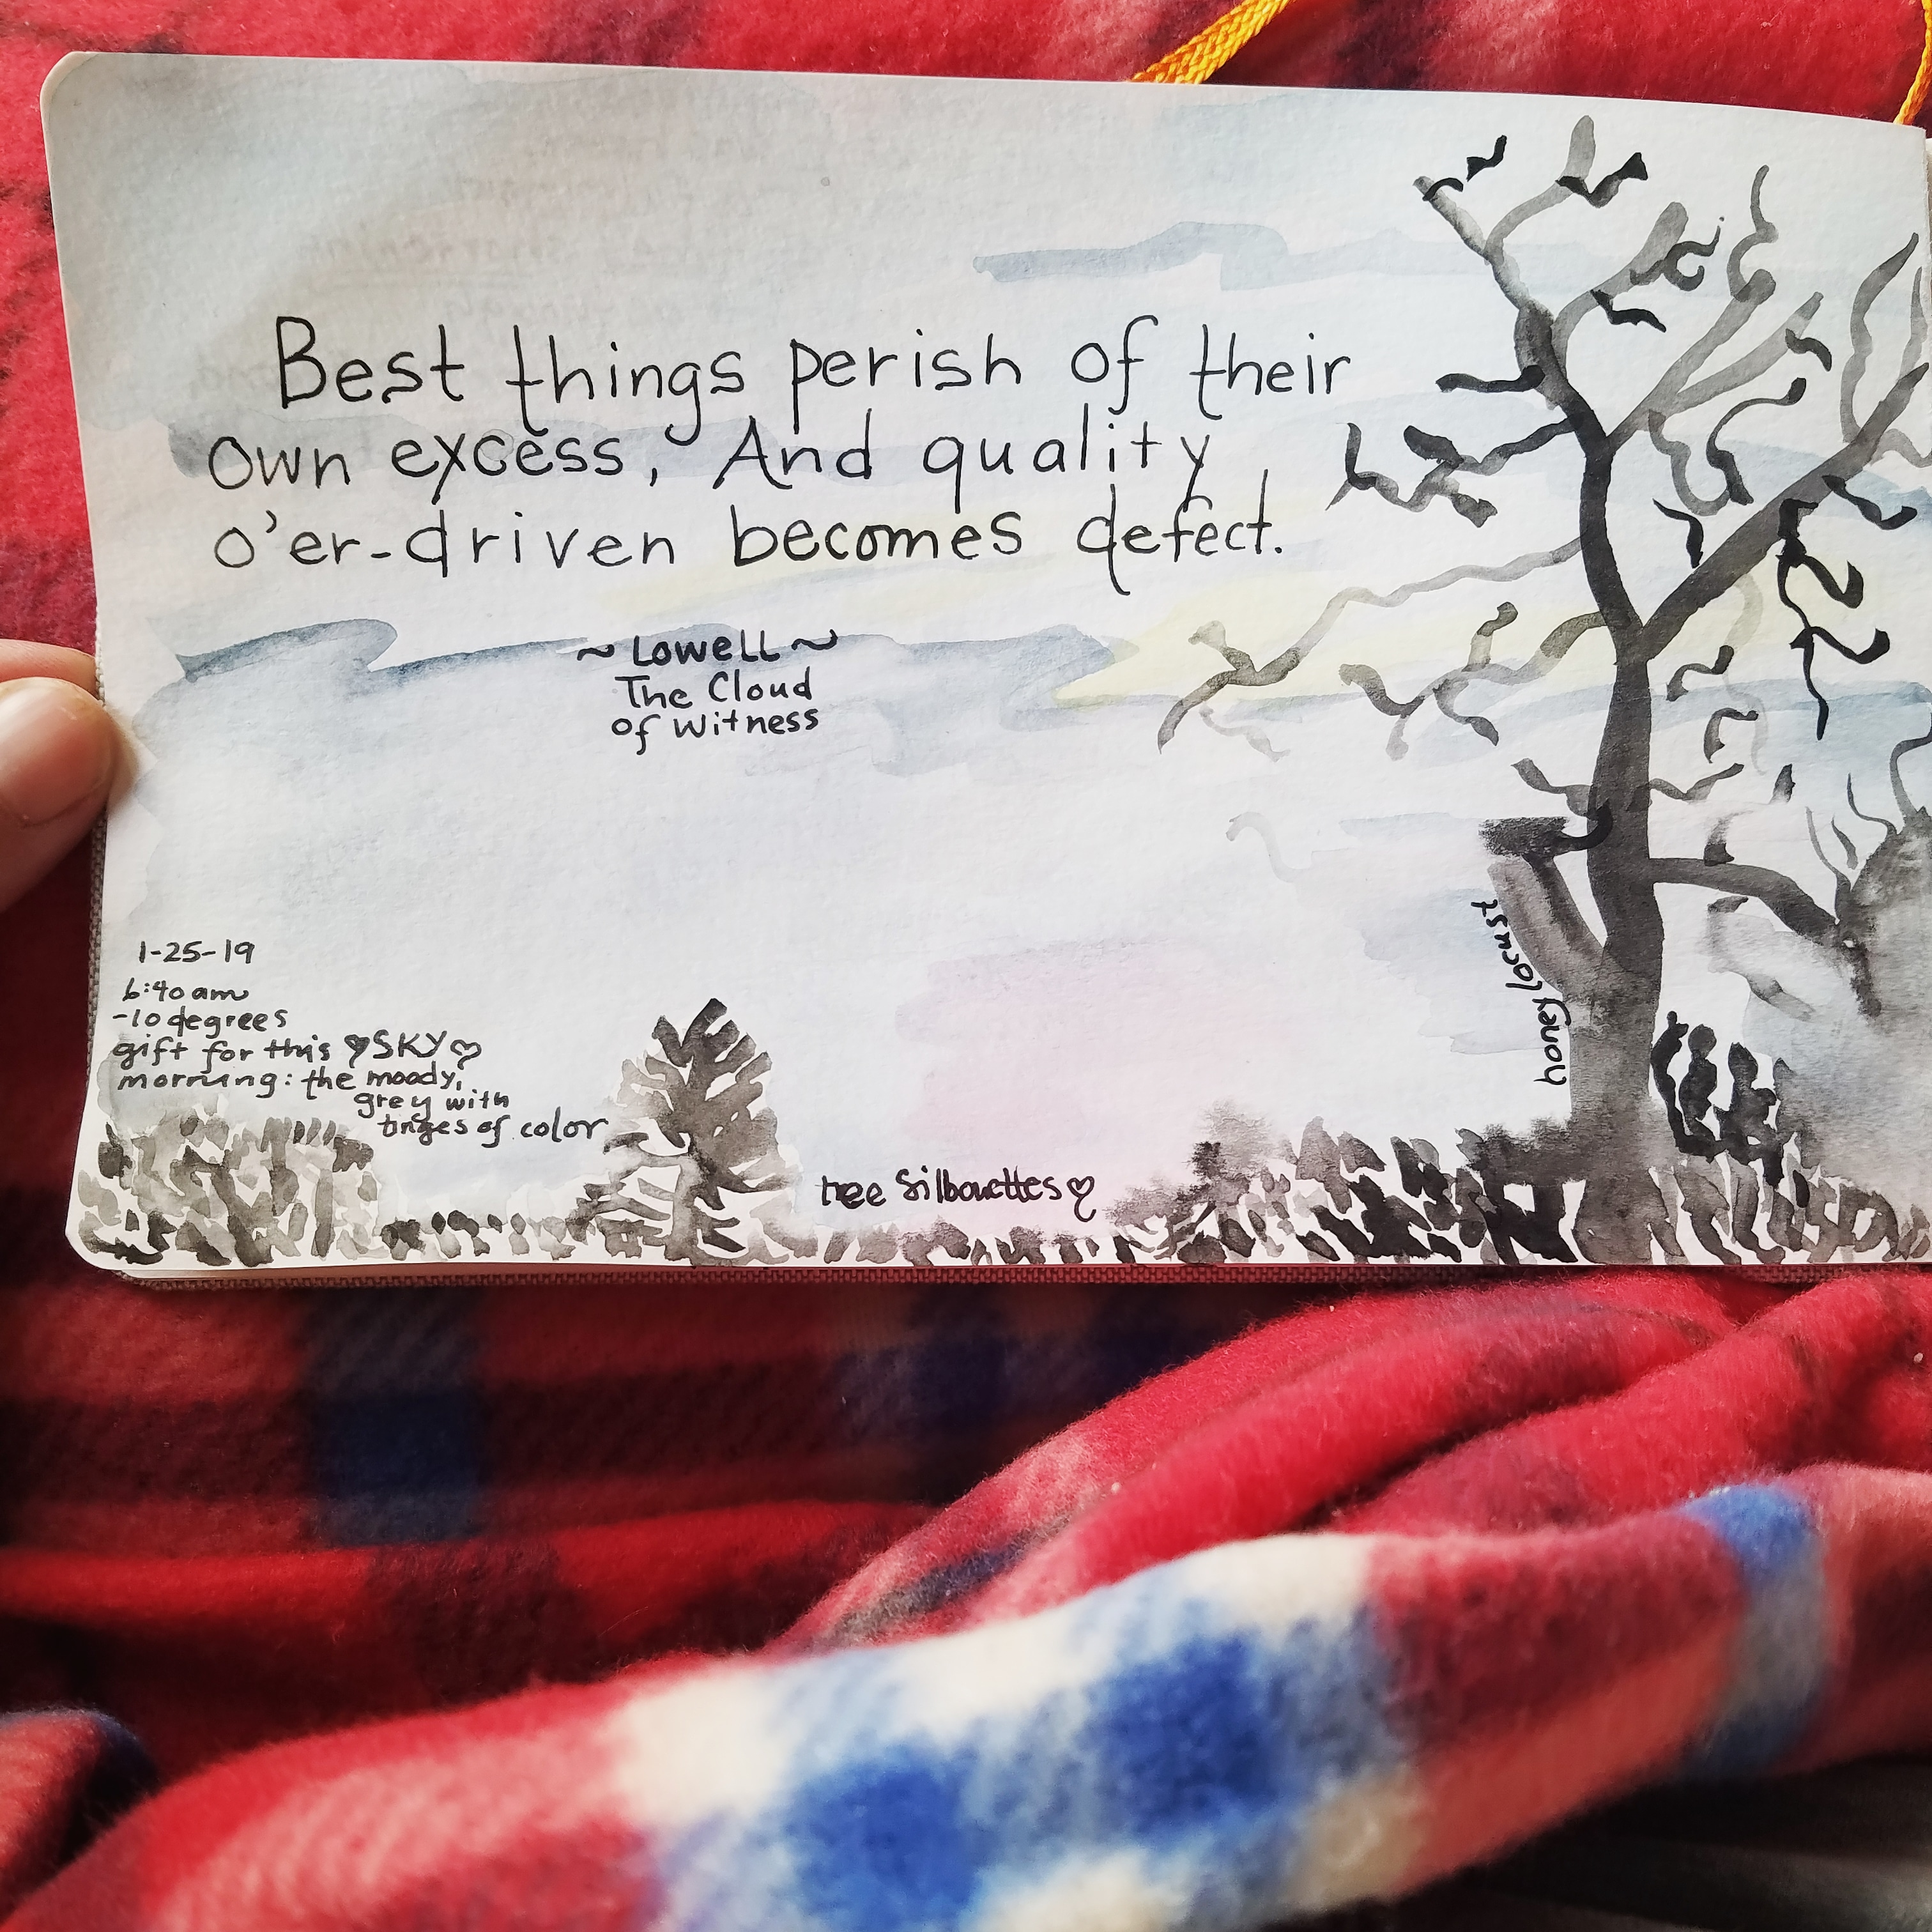 Best things perish of their
own excess, And quality
o'er-driven becomes defect.
~ Lowell ~
The Cloud
of Witness
1-25-19
6:40 am
-10 degrees
gift for this ♥SKY♡
morning: the moody,
grey with
tinges of color
tree silhouettes ♡
honey locust